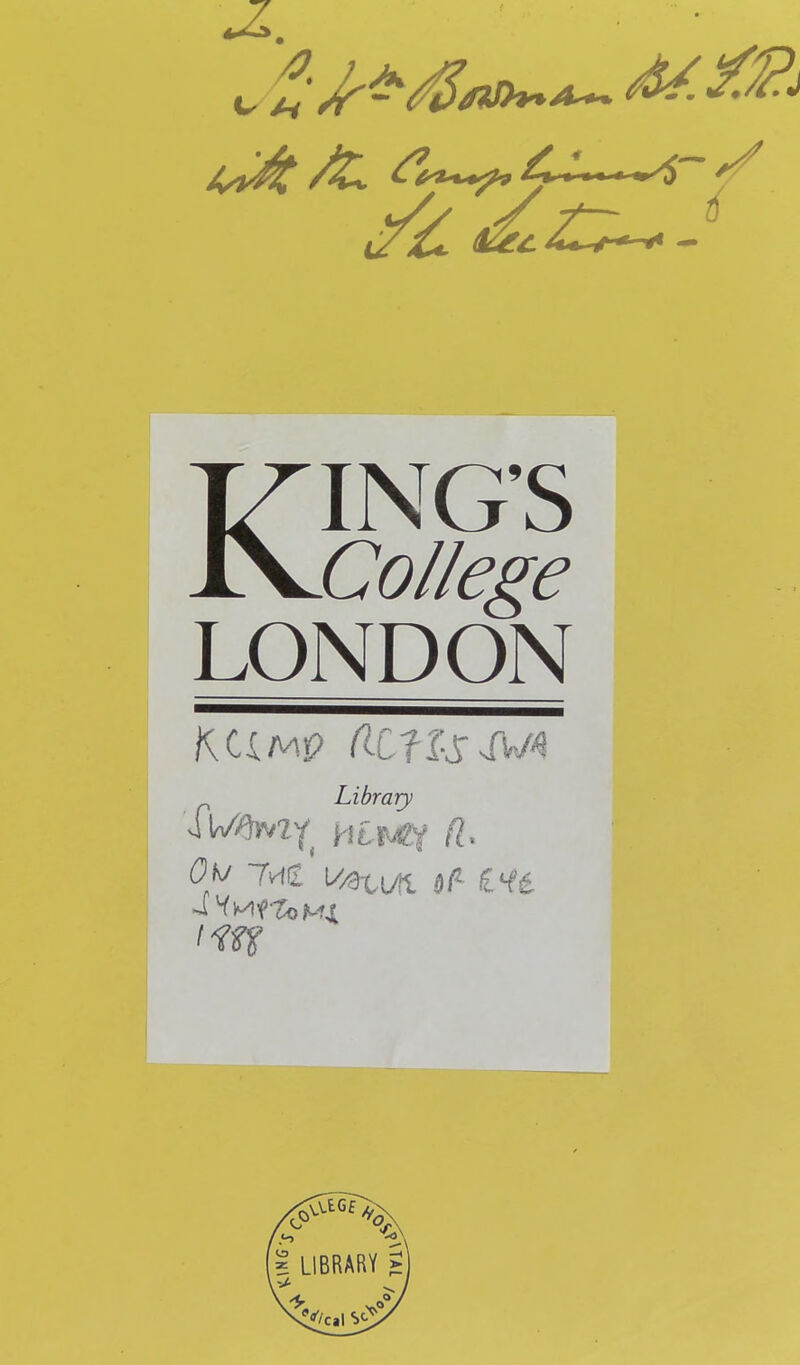 Sir Wm Bowman M.F.R.S
with the Compliments of
The Author -
KING'S
College
LONDON
KCSMD RE715 SWA
Library
SWANZY, HENRY R.
ON THE VALUE OF EYE
SYMPTOMS
1888
KING'S COLLEGE HOSPITAL
LIBRARY
Medical School